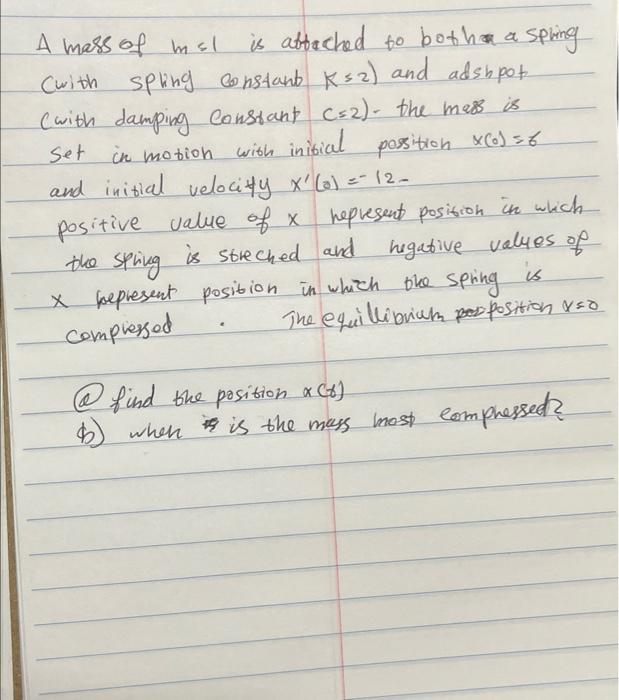 A mass of m=1 is attached to both a spring
(with spring constant K=2) and adshpot
(with damping constant C=2). the mass is
Set in motion with initial position x(0)=6
and initial velocity x'(0)=-12.
positive value of x represent position in which
the spring is streched and negative values of
x represent position in which the spring is
compressed . The equillibrium position x=0
(a) find the position x(t)
b) when is the mass most compressed?